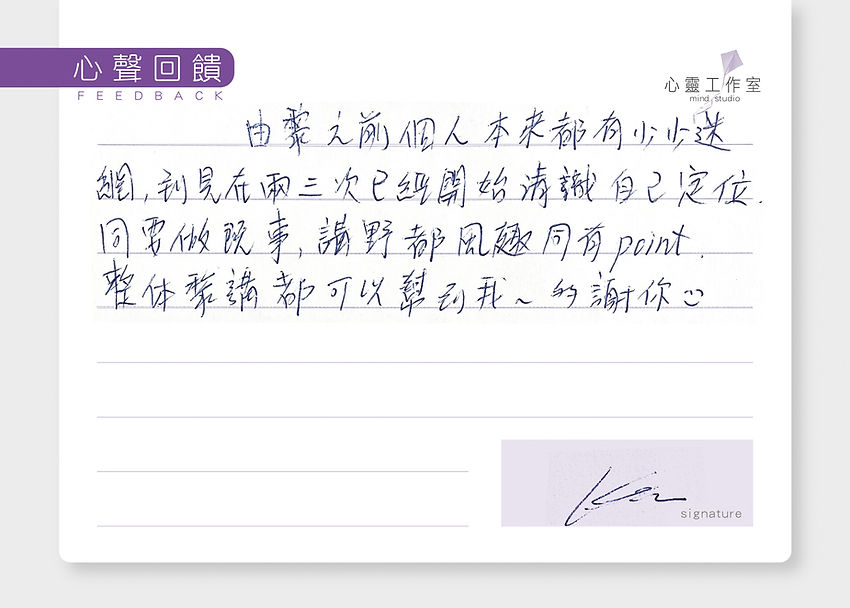 心聲回饋
FEEDBACK
心靈工作室
mind studio
由黎之前個人本來都有少少迷
網,到見在兩三次已經開始清識自己定位.
同要做既事,講野都風趣同有point.
整体黎講都可以幫到我~ 的謝你
signature